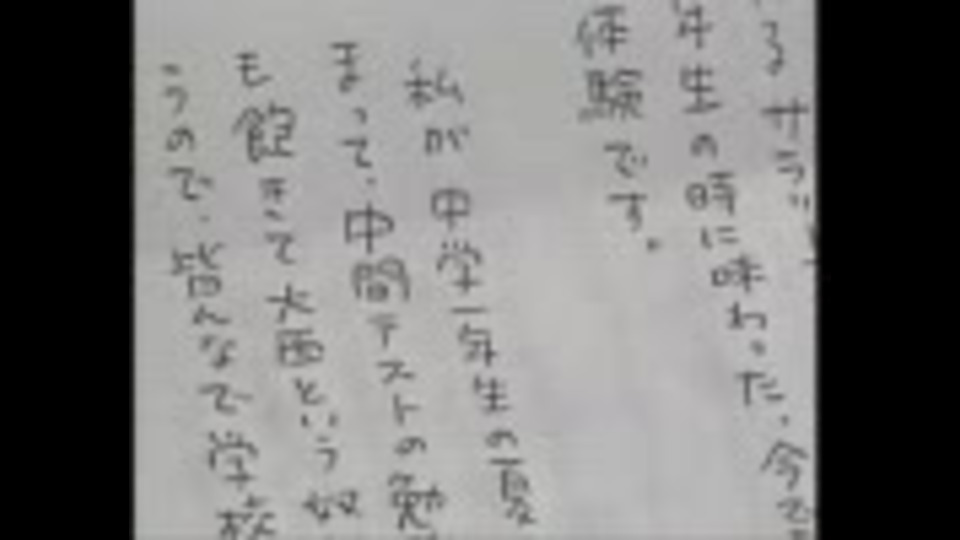 るサラリ
年生の時に味わった、今で
体験です。
私が中学一年生の夏
まって、中間テストの勉
も飽きて大西という奴
うので、皆んなで学校